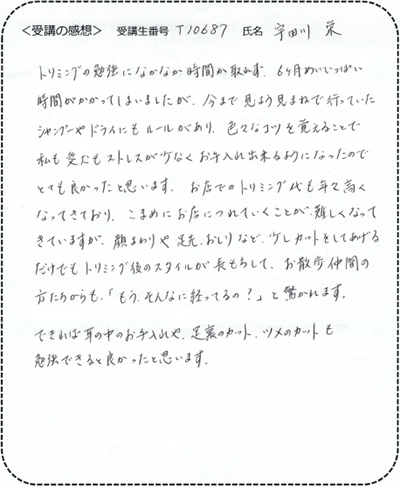 ＜受講の感想＞ 受講生番号 T10687 氏名 宇田川 栄
トリミングの勉強になかなか時間が取れず、6ヶ月めいいっぱい
時間がかかってしまいましたが、今まで見よう見まねで行っていた
シャンプーやドライにもルールがあり、色々なコツを覚えることで
私も愛犬もストレスが少なくお手入れ出来るようになったので
とても良かったと思います。お店でのトリミング代も年々高く
なってきており、こまめにお店につれていくことが難しくなって
きていますが、顔まわりや足元、おしりなど、少しカットをしてあげる
だけでもトリミング後のスタイルが長もちして、お散歩仲間の
方たちからも、「もう、そんなに経ってるの？」と驚かれます。
できれば耳の中のお手入れや、足裏のカット、ツメのカットも
勉強できると良かったと思います。